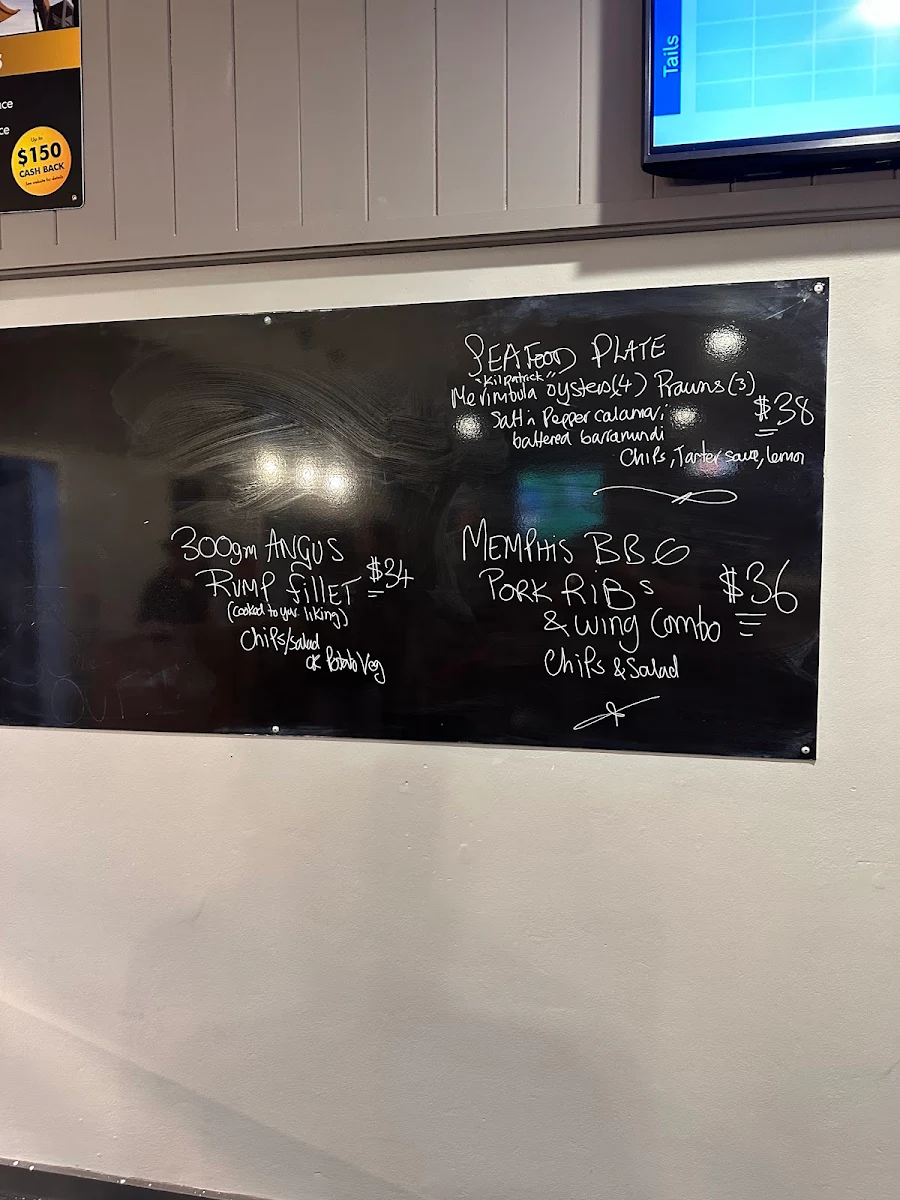 ce
ce
Up to
$150
CASH BACK
Tails
SEAFOOD PLATE
"Kilpatrick"
Merimbula oysters(4) Prawns(3)
$38
Salt n Pepper calamari
battered barramundi
Chips, Tarter sauce, lemon
300gm ANGUS
RUMP fillET
$34
(cooked to your liking)
Chips/salad
OR Potato Veg
MEMPHIS BBQ
PORK RiBs
$36
& wing Combo
Chips & Salad
OUT